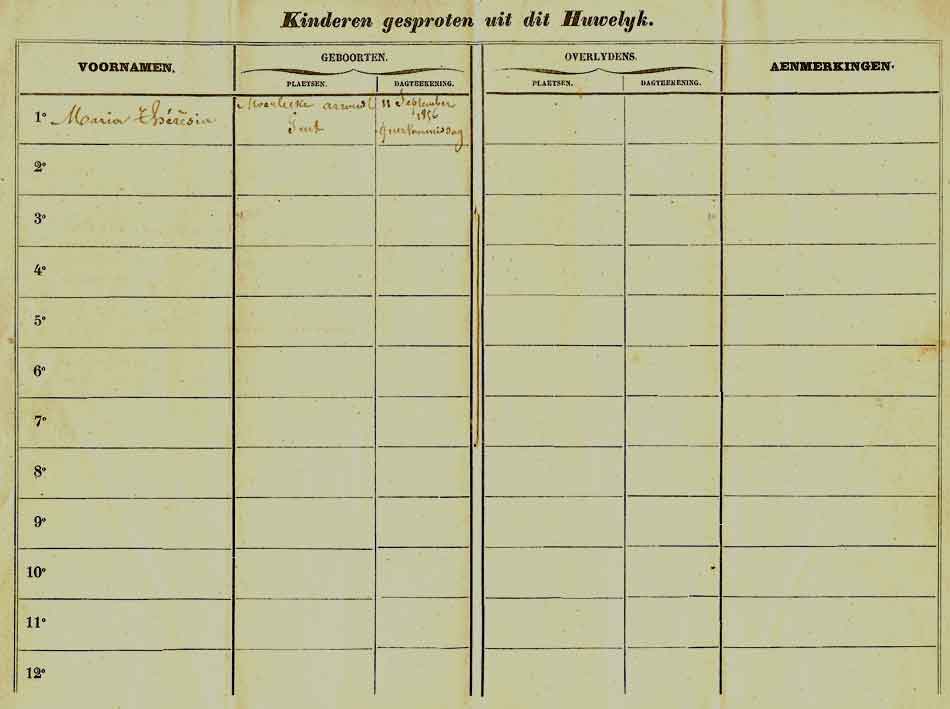 Kinderen gesproten uit dit Huwelyk.
VOORNAMEN.
GEBOORTEN.
OVERLYDENS.
AENMERKINGEN.
PLAETSEN.
DAGTEEKENING.
PLAETSEN.
DAGTEEKENING.
1° Maria Thérèsia
Moerbeke
Gent
11 September
1856
2°
3°
4°
5°
6°
7°
8°
9°
10°
11°
12°